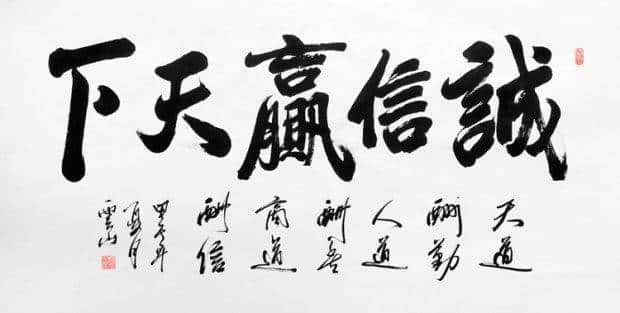 誠信贏天下
天道
酬勤
人道
酬善
商道
酬信
甲午年
夏月
雲山